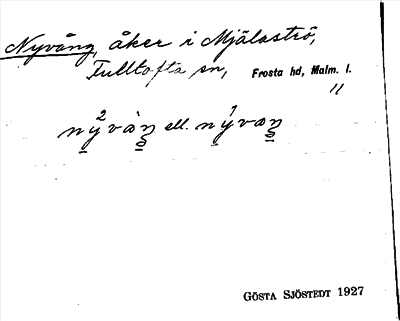 Nyvång, åker i Mjälaströ,
Fulltofta sn, Frosta hd, Malm. l.
"
ell.
GÖSTA SJÖSTEDT 1927